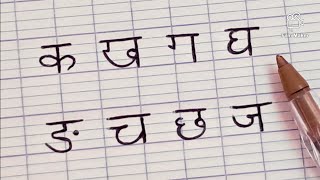 क ख ग घ
ङ च छ ज